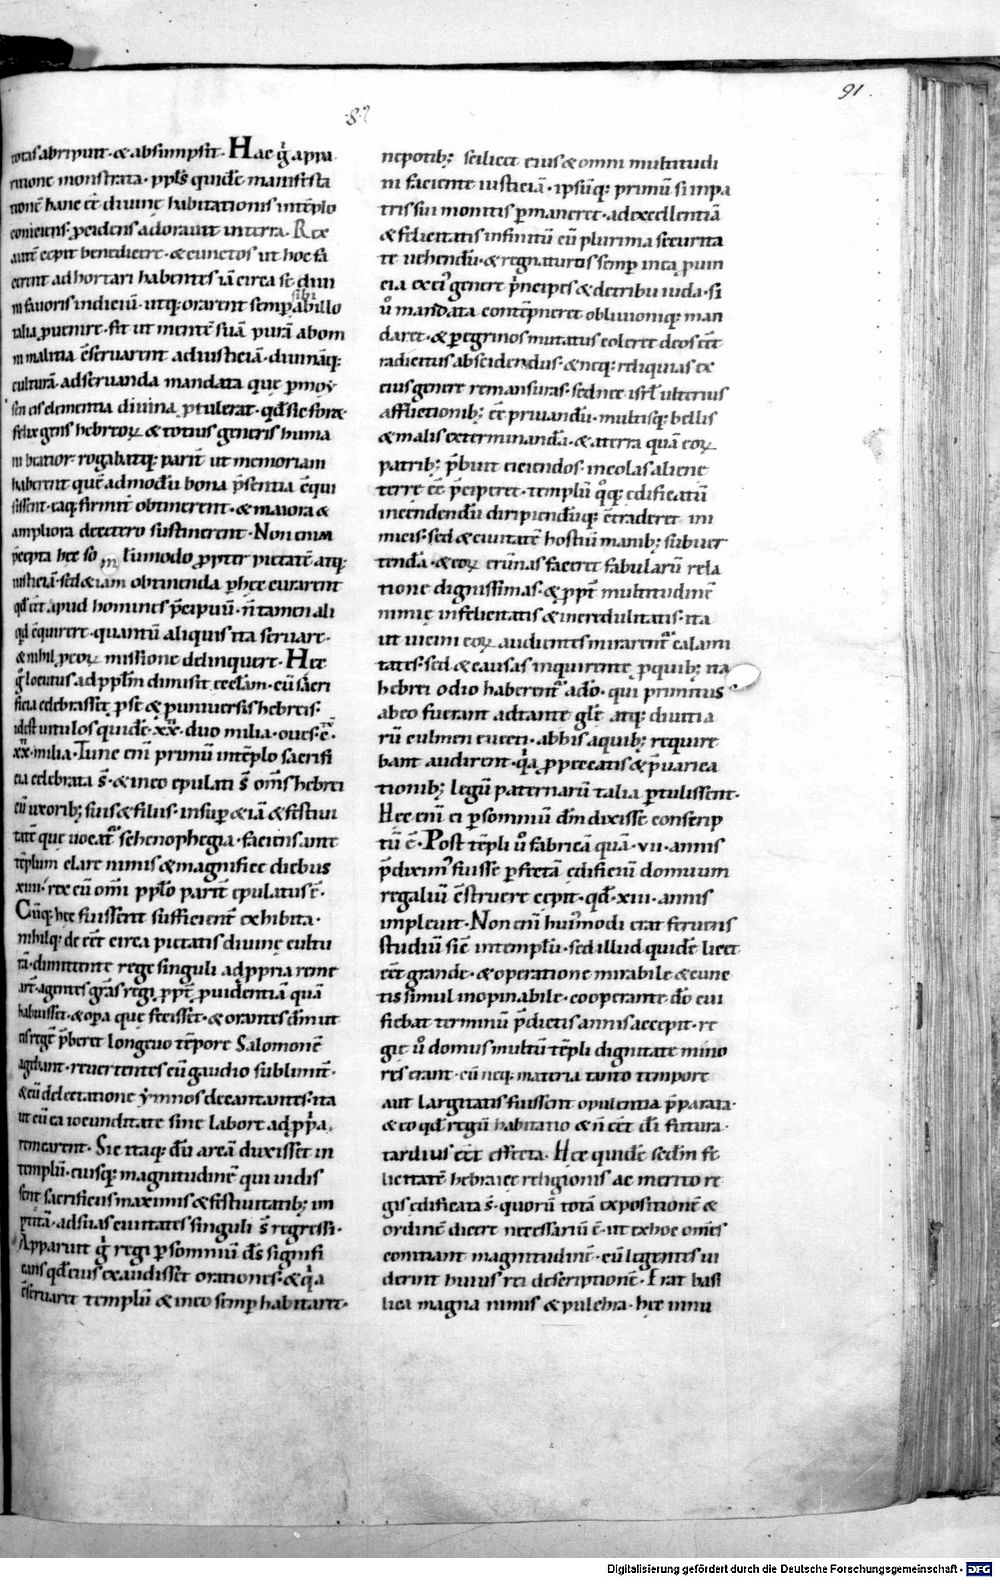 91.
·8·?
totas abripuit · & absumpsit · Hac g̊ appa
ritione monstrata · ppl's quidē manifesta
tionē hanc eē diuinę habitationis intēplo
coniciens · ꝓcidens adorauit interra · Rex
autē cepit benedicere · & cunctos ut hoc fa
cerent adhortari habentes iā circa se diui
ni fauoris indiciū · utq; orarent semp̲ sibi abillo
talia ꝓuenire · fit ut mentē suā purā abom
ni malitia cs̄eruarent adiusticiā · diuināq;
culturā · adseruanda mandata que p̲ moy
sen eis clementia diuina ꝓtulerat · qd̄ sic fore
felix gens hebreoꝝ & totius generis huma
ni beatior · rogabatq; parit̄ ut memoriam
haberent quē admodū bona p̄sentia cēqui
sissent · eaq; firmit̄ obtinerent · & maiora &
ampliora decetero sustinerent · Non enim
p̄cepta hęc solummodo ꝓpter pietatē atq;
iusticiā · sed & iam obtinenda p̲ hęc curarent
qd̄ eēt apud homines p̄cipuū · n̄ tamen ali
qd cēquirere · quantū aliquis ita seruare ·
& nihil ꝓeoꝝ missione delinquere · Hęc
g̊ locutus ad pplm̄ dimisit eccl'am · cū sacri
ficia celebrasset ꝓ se & ꝓ uniuersis hebreis ·
idest uitulos quidē · xx · duo milia · oues · c̄ ·
xx · milia · Tunc eni primū intēplo sacrifi
cia celebrata s̄ · & ineo epulati s̄ om̄s hebrei
cū uxorib; suis & filiis · insup̲ & iā & festiui
tatē que uocat̄ schenophegia · faciens ante
tēplum clare nimis & magnifice diebus
xiiii · rex cū omī pplo parit̄ epulatus ē ·
Cūq; hęc fuissent sufficient̄ exhibita ·
nihilq; de eēt circa pietatis diuinę cultu
rā · dimittente rege singuli ad ꝓpria reme
art̄ · agentes gr̄as regi ꝓpt̄ ꝓuidentiā quā
habuisset · & op̲a que fecisset · & orantes dm̄ ut
eis regē p̄beret longeuo tēpore Salomonē
agebant · reuertentes cū gaudio sublimit̄ ·
& cū delectatione ẏmnos decantantes · ita
ut cū ea iocunditate sine labore ad ꝓpria
remearent · Sic itaq; dū arcā duxisset in
templū · eiusq; magnitudinē qui uidis
sent sacrificiis maximis & festiuitatib; im
pletā · ad suas ciuitates singuli s̄ regressi ·
Apparuit g̊ regi p̲ somniū d̄s signifi
cans qd̄ eius exaudisset orationes · & qa
cs̄eruaret templū & ineo semp̲ habitaret ·
nepotib; scilicet eius & omni multitudi
ni faciente iusticiā · ipsūq; primū si inpa
tris sui monitis p̲maneret · adexcellentiā
& felicitatis infinitū cū plurima securita
te uehendū · & regnaturos semp̲ inea ꝓuin
cia exei' genere p̄ncipes & detribu iuda · si
ů mandata contēpneret obliuioniq; man
daret · & p̲egrinos mutatus coleret deos eēt
radicitus abscidendus · & neq; reliquias ex
eius genere remansuras · sed nec isrl̄ ulterius
afflictionib; eē priuandū · multisq; bellis
& malis exterminandā · & aterra quā eoꝝ
patrib; p̄buit eiciendos · incolas aliene
terre eē p̄ciperet · templū q̊q; edificatū
incendendū diripiendūq; cētraderet ini
micis · sed & ciuitatē hostiū manib; subuer
tendā · & eoꝝ erūnas faceret fabularū rela
tione dignissimas · & ꝓpt̄ multitudinē
nimię infelicitatis & incredulitatis · ita
ut uicini eoꝝ audientes mirarent̄ calami
tates · sed & causas inquirente ꝓ quib; na
hebrei odio haberent̄ ado · qui primitus
abeo fuerant adtante glę atq; diuitia
rū culmen euecti · abhis aquib; require
bant audirent · qa ꝓpeccatis & p̄uarica
tionib; legū paternarū talia p̲tulissent ·
Hęc eni ei p̲ somniū dm̄ dixisse conscrip
tū ē · Post tēpli ů fabricā quā · vii · annis
p̄dixim' fuisse p̲fectā edificiū domuum
regaliū cs̄truere cepit · qd̄ · xiii · annis
impleuit · Non eni hui'modi erat feruens
studiū sic intemplū · sed illud quidē licet
eēt grande · & operatione mirabile & cunc
tis simul inopinabile · cooperante dō cui
fiebat terminū p̄dictis annis accepit · re
gię ů domus multū tēpli dignitate mino
res erant · cū neq; materia tanto tempore
aut largitatis fuissent opulentia p̄parata ·
& eo qd̄ regū habitatio & n̄ eēt dī futura ·
tardius eēt effecta · Hęc quidē sedm̄ fe
licitatē hebraice religionis ac merito re
gis edificata s̄ · quorū totā expositionē &
ordinē dicere necessariū ē · ut exhoc omēs
coniciant magnitudinē · cū legentes ui
derint huius rei descriptionē · Erat basi
lica magna nimis & pulchra · hęc innu
Digitalisierung gefördert durch die Deutsche Forschungsgemeinschaft · DFG